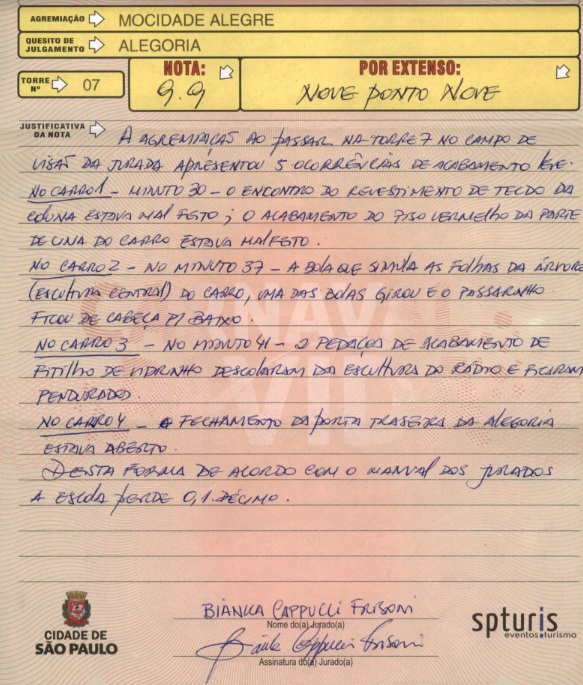 AGREMIAÇÃO MOCIDADE ALEGRE
QUESITO DE JULGAMENTO ALEGORIA
TORRE Nº 07
NOTA: 9.9
POR EXTENSO: NOVE PONTO NOVE
JUSTIFICATIVA DA NOTA
A AGREMIAÇÃO AO PASSAR NA TORRE 7 NO CAMPO DE
VISÃO DA JURADA APRESENTOU 5 OCORRÊNCIAS DE ACABAMENTO LEVE.
NO CARRO 1 - MINUTO 30 - O ENCONTRO DO REVESTIMENTO DE TECIDO DA
COLUNA ESTAVA MAL FEITO; O ACABAMENTO DO PISO VERMELHO DA PARTE
DE CIMA DO CARRO ESTAVA MALFEITO.
NO CARRO 2 - NO MINUTO 37 - A BOLA QUE SIMULA AS FOLHAS DA ÁRVORE
(ESCULTURA CENTRAL) DO CARRO, UMA DAS BOLAS GIROU E O PASSARINHO
FICOU DE CABEÇA P/ BAIXO.
NO CARRO 3 - NO MINUTO 41 - 2 PEDAÇOS DE ACABAMENTO DE
FITILHO DE VIDRINHO DESCOLARAM DA ESCULTURA DO RÁDIO E FICARAM
PENDURADO.
NO CARRO 4 - O FECHAMENTO DA PORTA TRASEIRA DA ALEGORIA
ESTAVA ABERTO.
DESTA FORMA DE ACORDO COM O MANUAL DOS JURADOS
A ESCOLA PERDE 0,1 DÉCIMO.
BIANCA CAPPUCCI FRISONI
Nome do(a) Jurado(a)
Bianca Cappucci Frisoni
Assinatura do(a) Jurado(a)
CIDADE DE
SÃO PAULO
spturis
eventos turismo